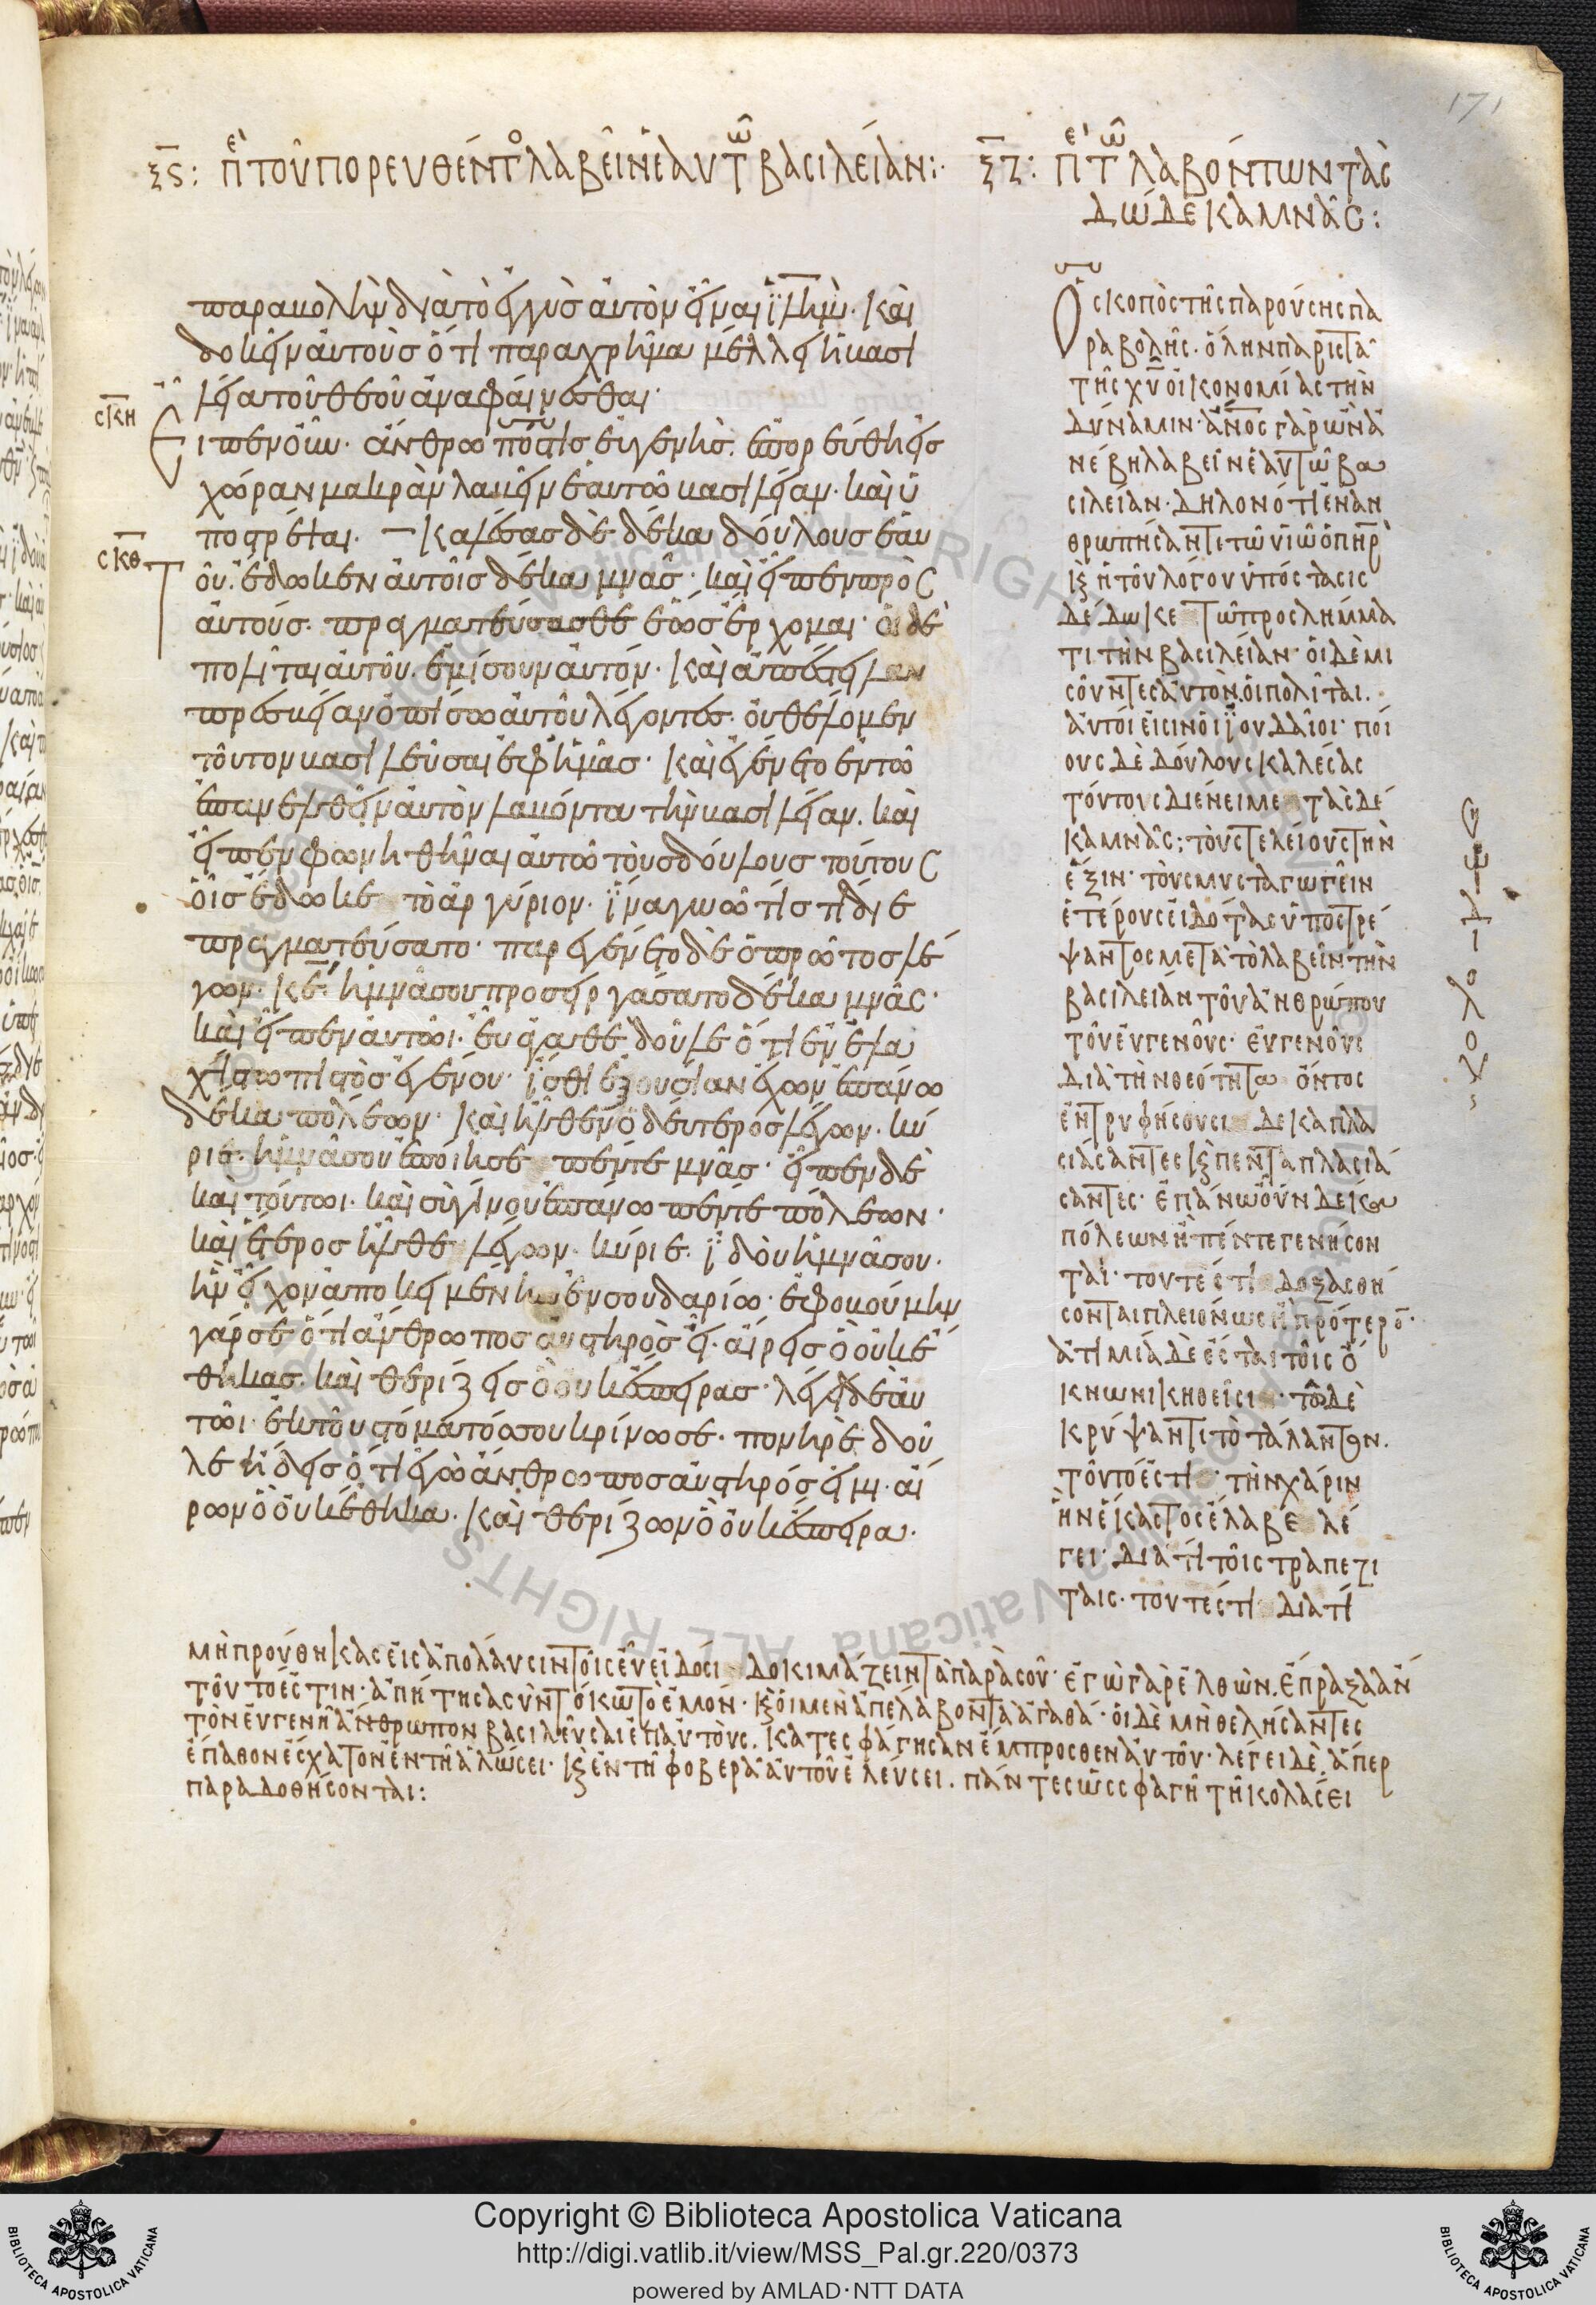 171
ξϛ: πὲ τοῦ πορευθέντο λαβεῖν ἑαυτῶ βασιλείαν:·
ξζ: πὲ τῶ λαβόντων τὰς
δώδεκα μνᾶς:
παραβολὴν διὰ τὸ ἐγγὺσ αὐτὸν εἶναι ἰλημ· καὶ
δοκεῖν αὐτοὺσ ὅτι παραχρῆμα μέλλει ἡ βασι
λεία τοῦ θεοῦ ἀναφαίνεσθαι·
σκη
εἶπεν οὖν· ἄνθρωπός τισ εὐγενὴσ· ἐπορεύθη εἰσ
χώραν μακρὰν λαβεῖν ἑαυτῶ βασιλείαν· καὶ ὑ
ποστρέψαι· καλέσασ δὲ δέκα δούλουσ ἑαυ
σκθ
τοῦ· ἔδωκεν αὐτοῖσ δέκα μνᾶσ· καὶ εἶπεν πρὸς
αὐτούσ· πραγματεύσασθε ἕωσ ἔρχομαι· οἱ δὲ
πολῖται αὐτοῦ· ἐμίσουν αὐτόν· καὶ ἀπέστειλαν
πρεσβείαν ὀπίσω αὐτοῦ λέγοντεσ· οὐ θέλομεν
τοῦτον βασιλεῦσαι ἐφ ἡμᾶσ· καὶ ἐγένετο ἐν τῶ
ἐπανελθεῖν αὐτὸν λαβόντα τὴν βασιλείαν· καὶ
εἶπεν φωνηθῆναι αὐτῶ τοὺσ δούλουσ τούτους
οἷσ ἔδωκε τὸ ἀργύριον· ἵνα γνῶ τίσ τί διε
πραγματεύσατο· παρεγένετο δὲ ὁ πρῶτοσ λέ
γων· κε· ἡ μνᾶ σου προσειργάσατο δέκα μνᾶς·
καὶ εἶπεν αὐτῶι· εὖ ἀγαθὲ δοῦλε ὅτι ἐν ἐλα
χίστω πιστὸσ ἐγένου· ἴσθι ἐξουσίαν ἔχων ἐπάνω
δέκα πόλεων· καὶ ἦλθεν ὁ δεύτεροσ λέγων· κύ
ριε· ἡ μνᾶ σου ἐποίησε πέντε μνᾶσ· εἶπεν δὲ
καὶ τούτωι· καὶ σὺ γίνου ἐπάνω πέντε πόλεων·
καὶ ἕτεροσ ἦλθε λέγων· κύριε· ἰδοὺ ἡ μνᾶ σου·
ἣν εἶχον ἀποκειμένην ἐν σουδαρίω· ἐφοβούμην
γάρ σε ὅτι ἄνθρωποσ αὐστηρὸσ εἶ· αἴρεισ ὃ οὐκ ἔ
θηκασ· καὶ θερίζεισ ὃ οὐκ ἔσπειρασ· λέγει δὲ αὐ
τῶι· ἐκ τοῦ στόματόσ σου κρίνω σε· πονηρὲ δοῦ
λε ἤδεισ ὅτι ἐγὼ ἄνθρωποσ αὐστηρόσ εἰμι· αἴ
ρων ὃ οὐκ ἔθηκα· καὶ θερίζων ὃ οὐκ ἔσπειρα·
Ὁ σκοπὸς τῆς παρούσης πα
ραβολῆς· ὅλην παριστᾶ
τῆς χυ οἰκονομίας τὴν
δύναμιν· ανος γὰρ ὢν ἀ
νέβη λαβεῖν ἑαυτῶ βα
σιλείαν· δηλονότι ἐν ἀν
θρωπήσαντι τῶ υἱῶ ὁ πηρ
κ ἡ τοῦ λόγου ὑπόστασις
δέδωκε τῶ προσλήμμα
τι τὴν βασιλείαν· οἱ δὲ μι
σοῦντες αὐτὸν οἱ πολῖται·
αὐτοί εἰσιν οἱ ἰουδαῖοι· ποί
ους δὲ δούλους καλέσας
τούτους διένειμε τὰς δέ
κα μνᾶς: τοὺς τελείους τὴν
ἕξιν· τοὺς μυσταγωγεῖν
ἑτέρους εἰδότας ὑποστρέ
ψαντος μετὰ τὸ λαβεῖν τὴν
βασιλείαν τοῦ ἀνθρώπου
τοῦ εὐγενοῦς· εὐγενοῦς
διὰ τὴν θεότητα ὄντος
ἐντρυφήσουσι δεκαπλα
σιάσαντες κ πενταπλασιά
σαντες· ἐπάνω οὖν δέκα
πόλεων ἢ πέντε γενήσον
ται· τουτέστι δοξασθή
σονται πλειόνως ἢ πρότερο·
ἀτιμία δὲ ἔσται τοῖς ὄ
κνω νικηθεῖσι· τῶ δὲ
κρύψαντι τὸ τάλαντον·
τοῦτο ἔστι τὴν χάριν
ἣν ἕκαστος ἔλαβε λέ
γει· διὰ τί τοῖς τραπεζί
ταις· τουτέστι διὰ τί
μὴ προύθηκας εἰς ἀπόλαυσιν τοῖς εὖ εἰδόσι δοκιμάζειν τὰ παρὰ σοῦ· ἐγὼ γὰρ ἐλθὼν ἔπραξα ἂν
τοῦτο ἔστιν· ἀπήτησα σὺν τόκω τὸ ἐμόν· κ οἱ μὲν ἀπέλαβον τὰ ἀγαθά· οἱ δὲ μὴ θελήσαντες
τὸν εὐγενῆ ἄνθρωπον βασιλεῦσαι ἐπ αὐτοὺς· κατεσφάγησαν ἔμπροσθεν αὐτοῦ· λέγει δὲ ἅπερ
ἔπαθον ἔσχατον ἐν τῆ ἁλώσει· κ ἐν τῆ φοβερᾶ αὐτοῦ ἐλεύσει· πάντες ὡς σφαγῆ τῆ κολάσει
παραδοθήσονται: